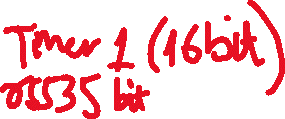 Timer 1 (16bit)
65535 bit